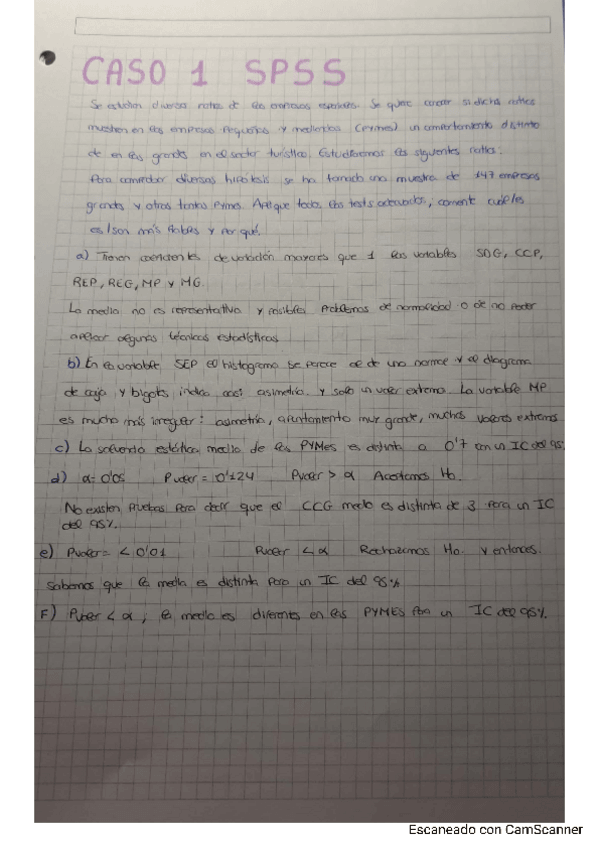 CASO 1 SPSS
Se estudian diversos ratios de las empresas españolas. Se quiere conocer si dichos ratios
muestran en las empresas pequeñas y medianas (PYMES) un comportamiento distinto
de en las grandes en el sector turístico. Estudiaremos los siguientes ratios.
Para comprobar diversas hipótesis se ha tomado una muestra de 147 empresas
grandes y otras tantas Pymes. Aplique todos los tests adecuados, comente cuál/es
es/son más fiables y por qué.
a) Tienen coeficientes de variación mayores que 1 las variables SDG, CCP,
REP, REG, MP y MG.
La media no es representativa y posibles problemas de normalidad o de no poder
aplicar algunas técnicas estadísticas
b) En la variable SEP el histograma se parece al de una normal y el diagrama
de caja y bigotes indica casi asimetría y solo un valor extremo. La variable MP
es mucho más irregular: asimetría, apuntamiento muy grande, muchos valores extremos
c) La solvencia estática media de las PYMEs es distinta a 0'7 con un IC del 95.
d) α = 0'05 Pvalor = 0'124 Pvalor > α Aceptamos Ho.
No existen pruebas para decir que el CCG medio es distinta de 3 para un IC
del 95%.
e) Pvalor = < 0'01 Pvalor < α Rechazamos Ho. y entonces.
sabemos que la media es distinta para un IC del 95%
F) Pvalor < α , la media es diferente en las PYMES para un IC del 95%.
Escaneado con CamScanner